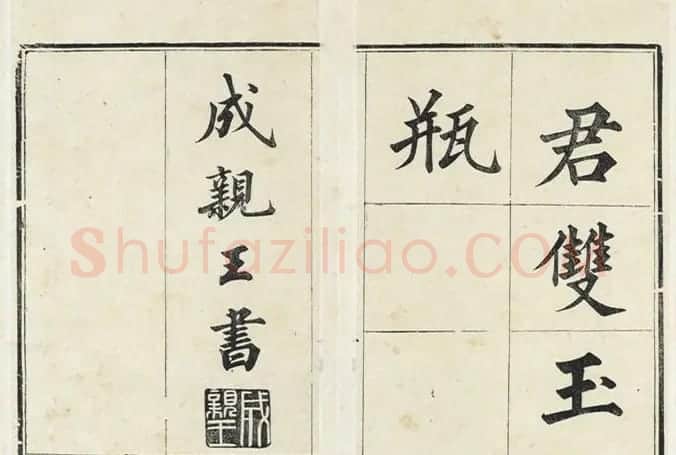 君雙玉
瓶
成親王書
成親王
Shufaziliao.com